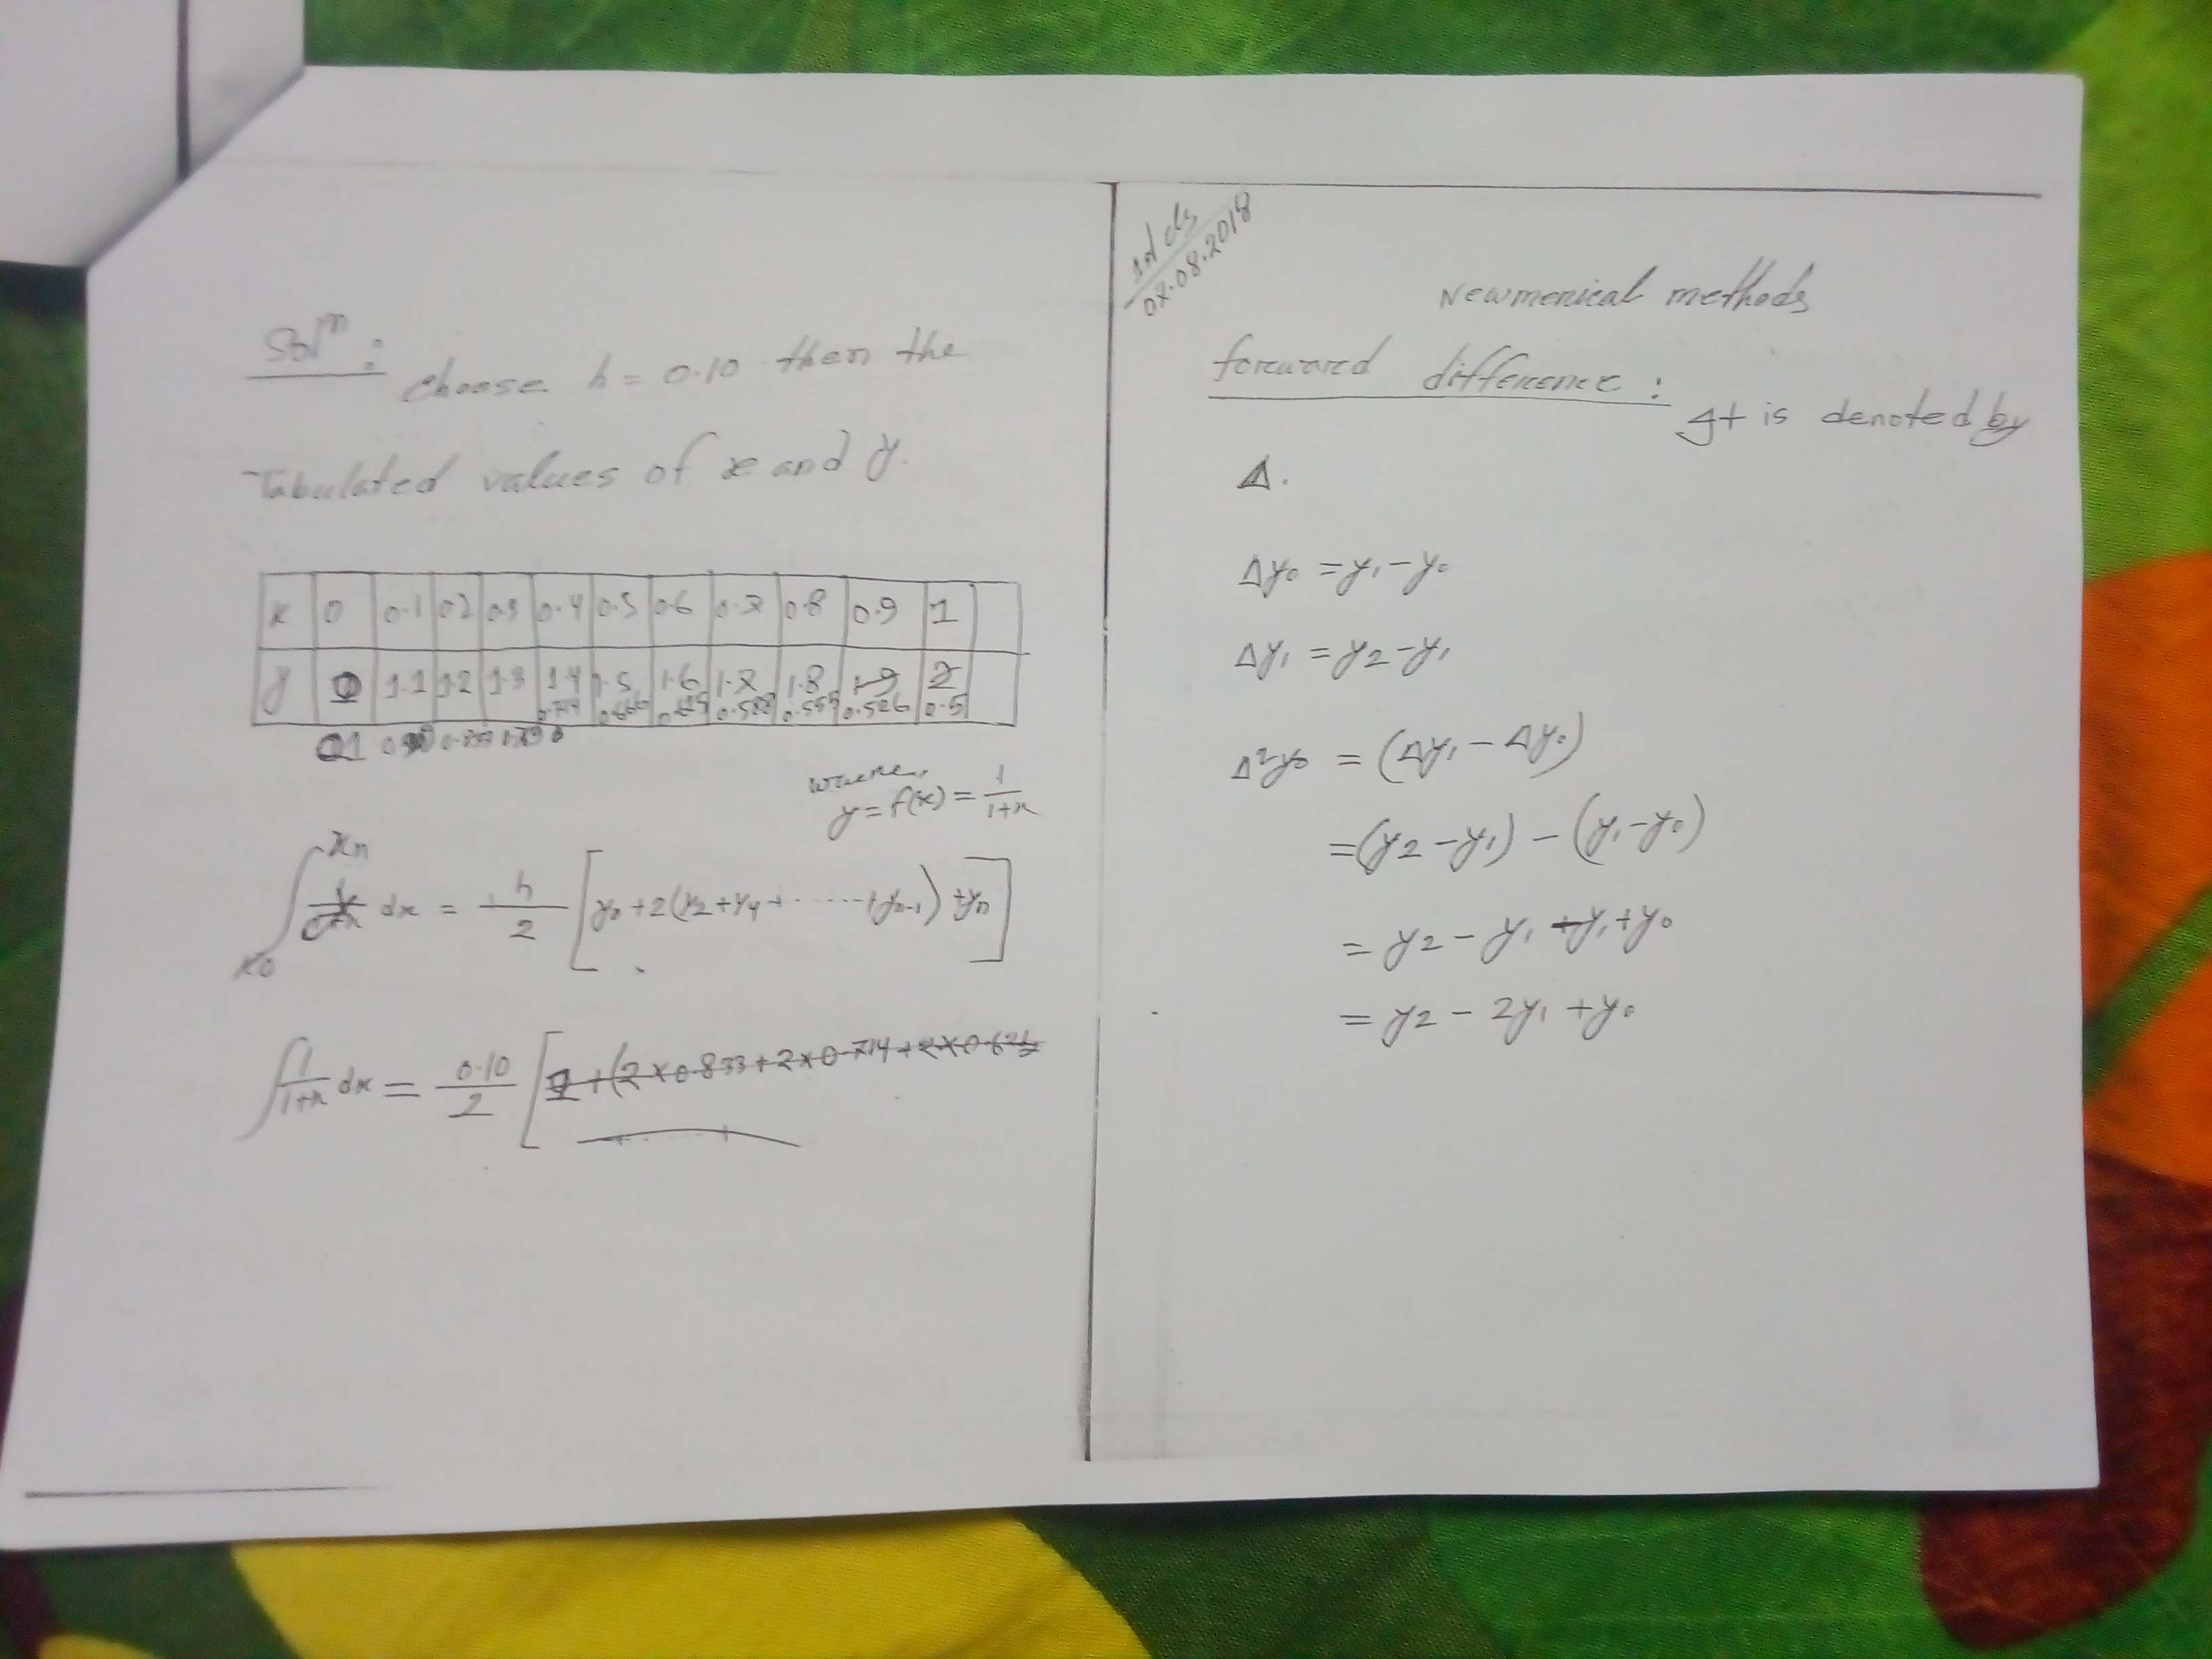 Solⁿ: choose h = 0.10 then the
Tabulated values of x and y.
x 0 0.1 0.2 0.3 0.4 0.5 0.6 0.7 0.8 0.9 1
y 1.1 1.2 1.3 1.4 1.5 1.6 1.7 1.8 1.9 2
0.714 0.666 0.625 0.588 0.555 0.526 0.5
1 0.833
where,
y = f(x) = 1/(1+x)
∫_{x0}^{xn} dx = h/2 [y₀ + 2(y₂ + y₄ + ...... + yₙ₋₁) + yₙ]
∫ 1/(1+x) dx = 0.10/2 [1 + (2×0.833 + 2×0.714 + 2×0.625
1st cls
07.08.2018
Newmerical methods
forward difference: It is denoted by
Δ.
Δy₀ = y₁ - y₀
Δy₁ = y₂ - y₁
Δ²y₀ = (Δy₁ - Δy₀)
= (y₂ - y₁) - (y₁ - y₀)
= y₂ - y₁ - y₁ + y₀
= y₂ - 2y₁ + y₀